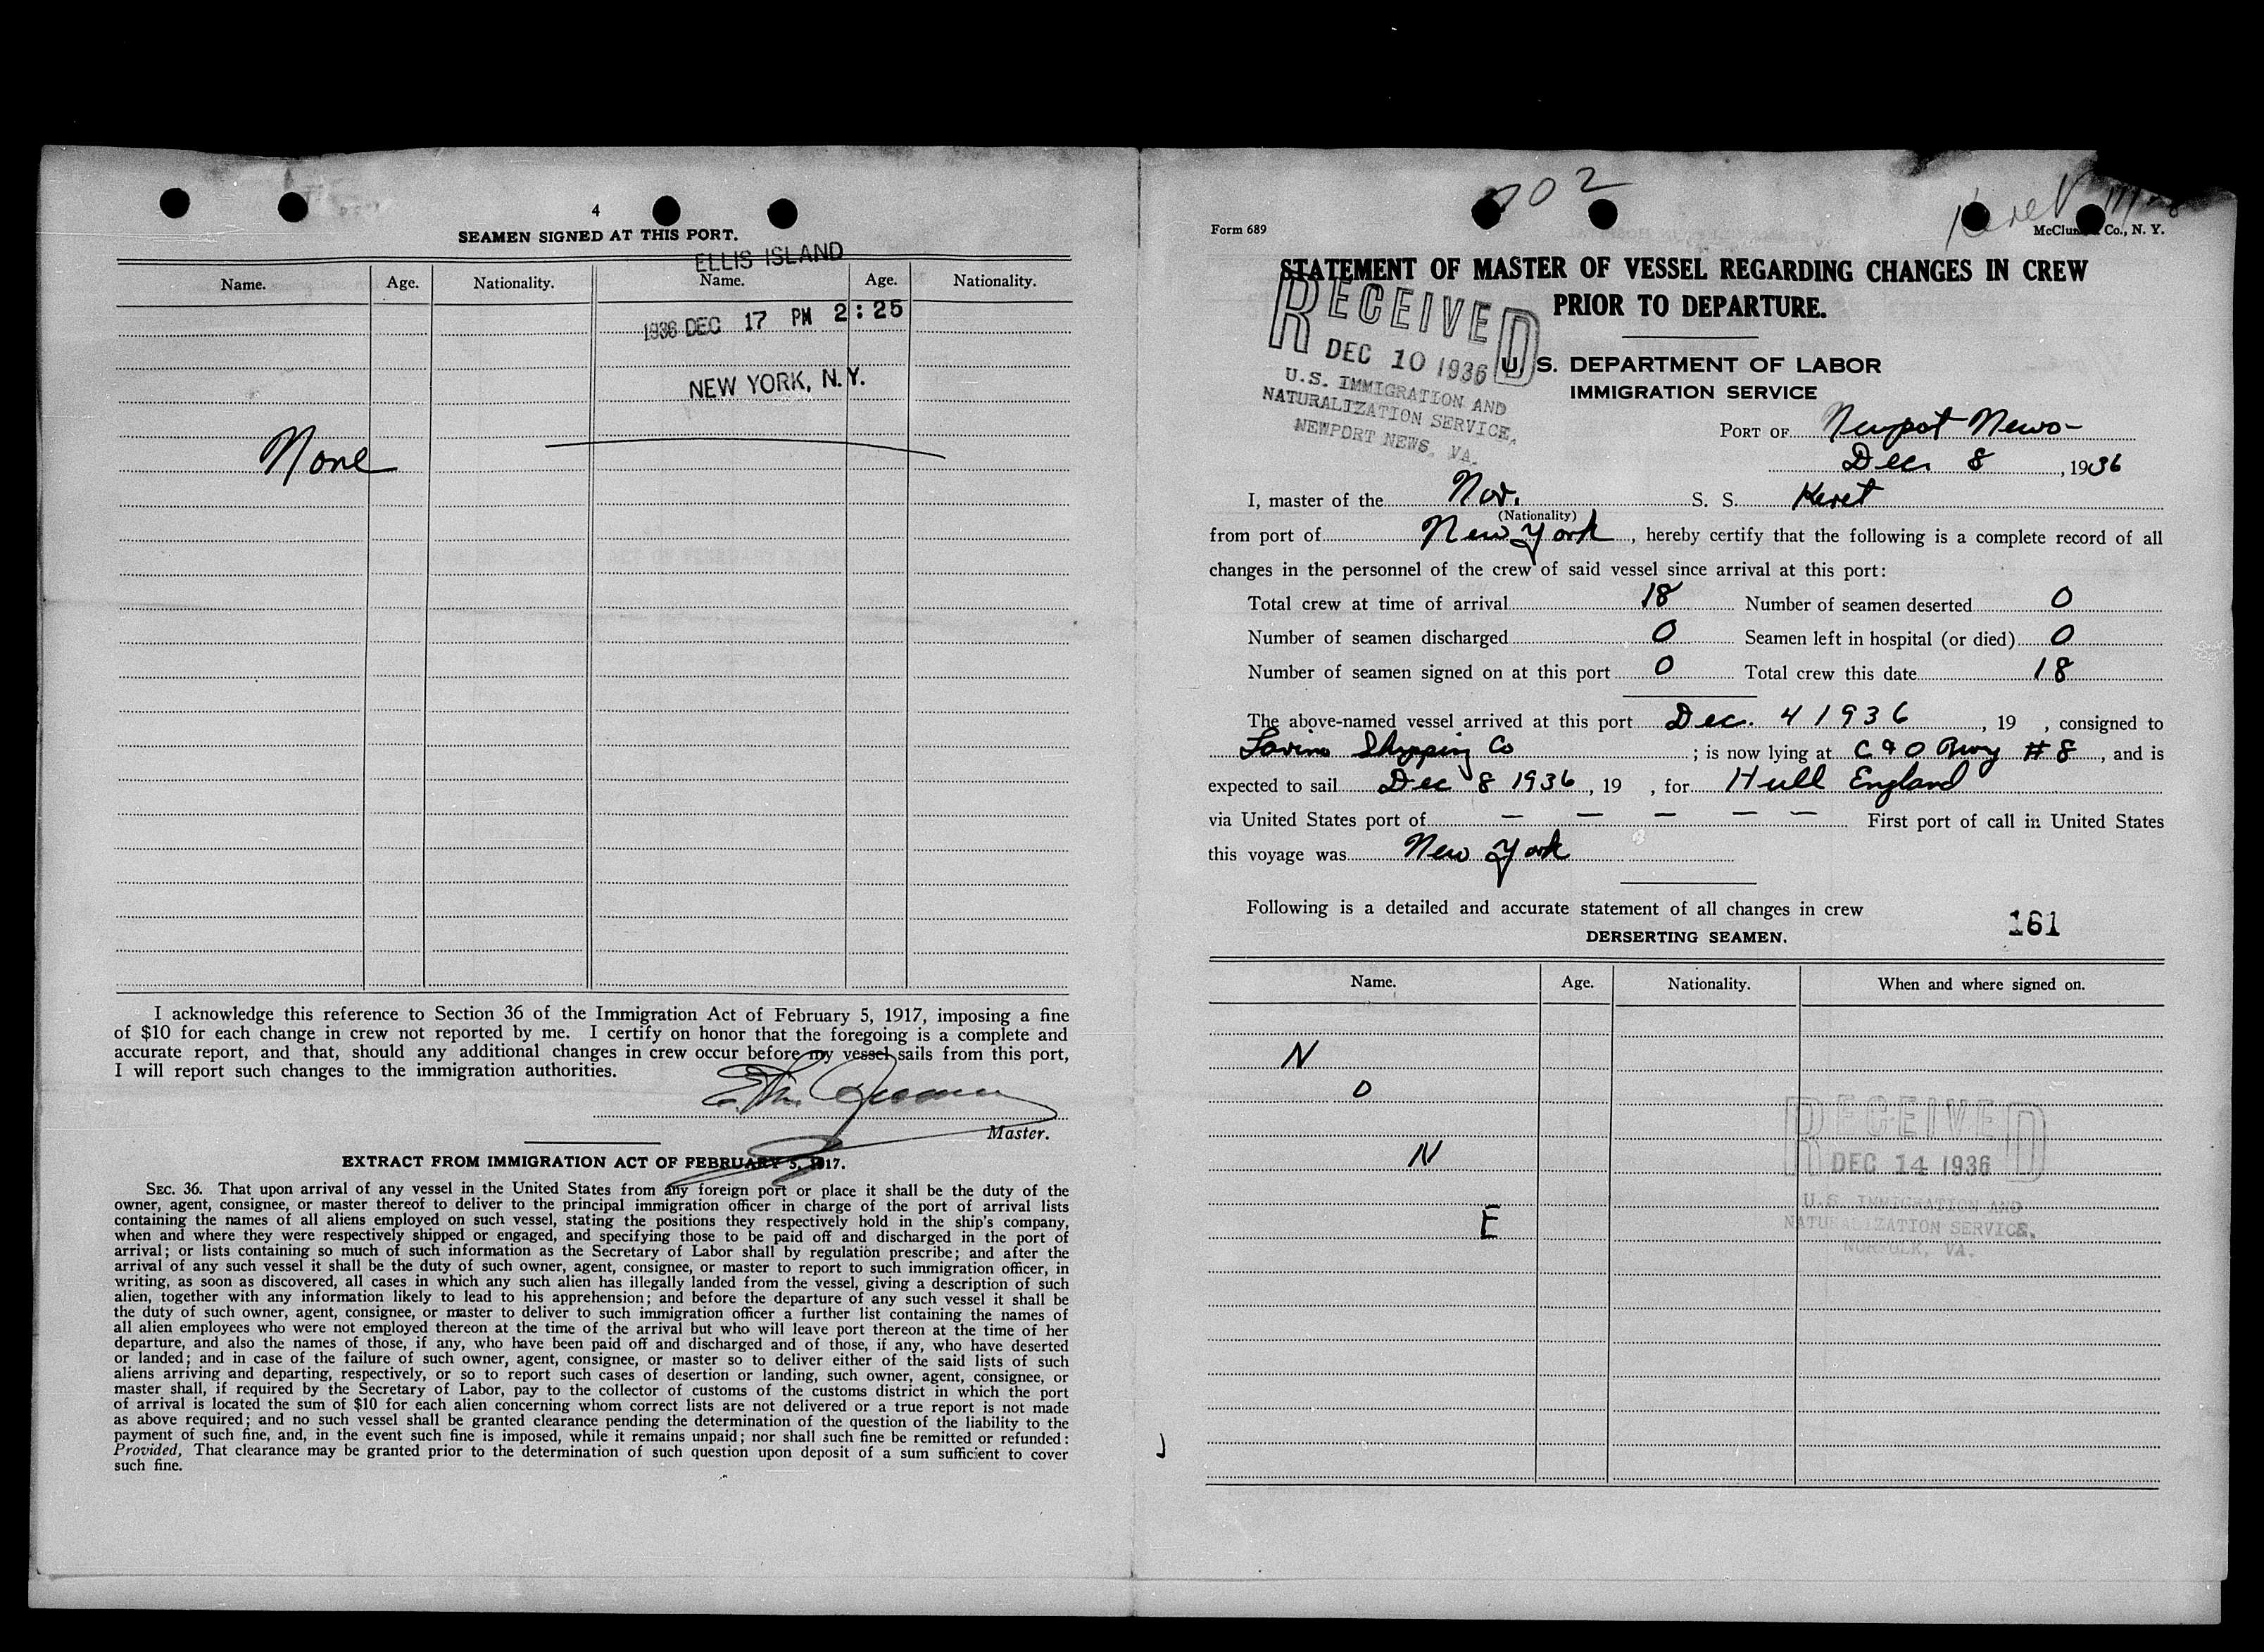 4
SEAMEN SIGNED AT THIS PORT.
ELLIS ISLAND
Name. Age. Nationality. Name. Age. Nationality.
1936 DEC 17 PM 2:25
NEW YORK, N.Y.
None
I acknowledge this reference to Section 36 of the Immigration Act of February 5, 1917, imposing a fine
of $10 for each change in crew not reported by me. I certify on honor that the foregoing is a complete and
accurate report, and that, should any additional changes in crew occur before my vessel sails from this port,
I will report such changes to the immigration authorities.
Master.
EXTRACT FROM IMMIGRATION ACT OF FEBRUARY 5, 1917.
SEC. 36. That upon arrival of any vessel in the United States from any foreign port or place it shall be the duty of the
owner, agent, consignee, or master thereof to deliver to the principal immigration officer in charge of the port of arrival lists
containing the names of all aliens employed on such vessel, stating the positions they respectively hold in the ship's company,
when and where they were respectively shipped or engaged, and specifying those to be paid off and discharged in the port of
arrival; or lists containing so much of such information as the Secretary of Labor shall by regulation prescribe; and after the
arrival of any such vessel it shall be the duty of such owner, agent, consignee, or master to report to such immigration officer, in
writing, as soon as discovered, all cases in which any such alien has illegally landed from the vessel, giving a description of such
alien, together with any information likely to lead to his apprehension; and before the departure of any such vessel it shall be
the duty of such owner, agent, consignee, or master to deliver to such immigration officer a further list containing the names of
all alien employees who were not employed thereon at the time of the arrival but who will leave port thereon at the time of her
departure, and also the names of those, if any, who have been paid off and discharged and of those, if any, who have deserted
or landed; and in case of the failure of such owner, agent, consignee, or master so to deliver either of the said lists of such
aliens arriving and departing, respectively, or so to report such cases of desertion or landing, such owner, agent, consignee, or
master shall, if required by the Secretary of Labor, pay to the collector of customs of the customs district in which the port
of arrival is located the sum of $10 for each alien concerning whom correct lists are not delivered or a true report is not made
as above required; and no such vessel shall be granted clearance pending the determination of the question of the liability to the
payment of such fine, and, in the event such fine is imposed, while it remains unpaid; nor shall such fine be remitted or refunded:
Provided, That clearance may be granted prior to the determination of such question upon deposit of a sum sufficient to cover
such fine.
Keret
Form 689 Co., N. Y.
STATEMENT OF MASTER OF VESSEL REGARDING CHANGES IN CREW
PRIOR TO DEPARTURE.
RECEIVED
DEC 10 1936
U.S. IMMIGRATION AND
NATURALIZATION SERVICE,
NEWPORT NEWS, VA.
U. S. DEPARTMENT OF LABOR
IMMIGRATION SERVICE
PORT OF Newport News
Dec. 8, 1936
I, master of the Nor. S. S. Keret
(Nationality)
from port of New York, hereby certify that the following is a complete record of all
changes in the personnel of the crew of said vessel since arrival at this port:
Total crew at time of arrival 18 Number of seamen deserted 0
Number of seamen discharged 0 Seamen left in hospital (or died) 0
Number of seamen signed on at this port 0 Total crew this date 18
The above-named vessel arrived at this port Dec. 4 1936, 19 , consigned to
Lavino Shipping Co ; is now lying at C & O #8, and is
expected to sail Dec 8 1936, 19 , for Hull England
via United States port of — — — — — First port of call in United States
this voyage was New York
Following is a detailed and accurate statement of all changes in crew
161
DERSERTING SEAMEN.
Name. Age. Nationality. When and where signed on.
N
O
N
E
RECEIVED
DEC 14 1936
U.S. IMMIGRATION AND
NATURALIZATION SERVICE,
NORFOLK, VA.